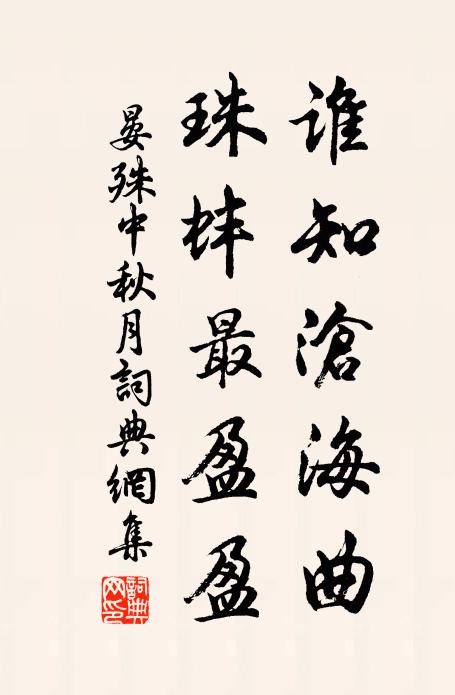 誰知滄海曲
珠蚌最盈盈
晏殊中秋月詞典網集
詞典网印